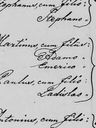 Stephanus, cum filio:
Stephano.
Martinus, cum filiis:
Adamo.
Emerico
Paulus, cum filio:
Ladislao.
Antonius, cum filio